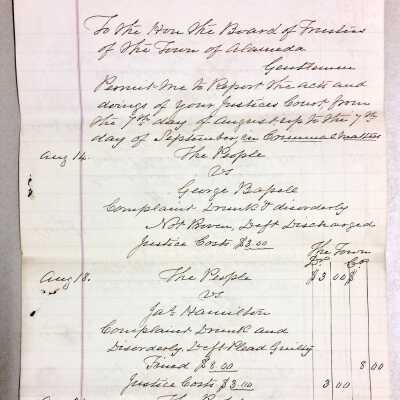 To the Hon the Board of Trustees
of the Town of Alameda
Gentlemen
Permit me to Report the acts and
doings of your Justices Court from
the 7th day of August up to the 7th
day of September in Criminal Matters
Aug 14. The People
vs
George
Complaint Drunk & disorderly
Not Proven, Deft Discharged
Justice Costs $3.00
The Town
Dr. Cr.
$3 00 $
Aug 18. The People
vs
Jas Hamilton
Complaint Drunk and
Disorderly, Deft Plead Guilty
Fined $8.00 8 00
Justice Costs $3.00 3 00
The